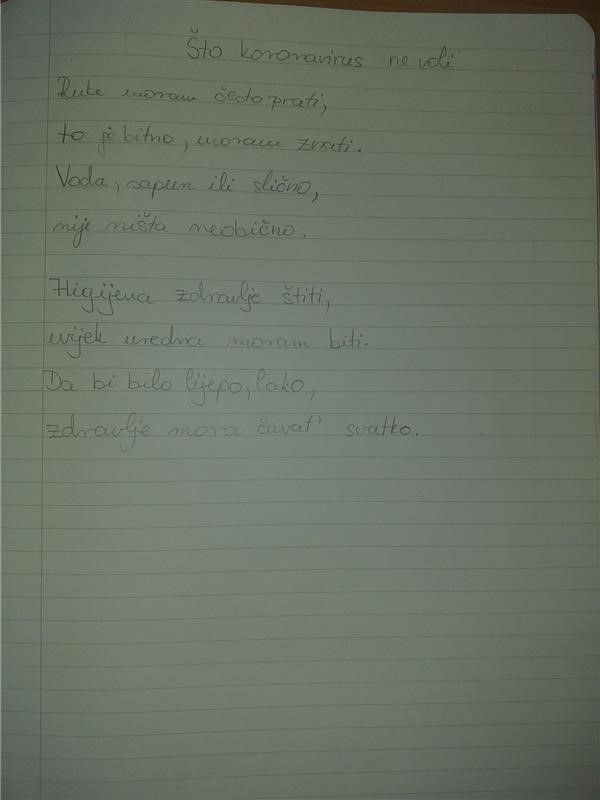 Što koronavirus ne voli
Ruke moram često prati,
to je bitno, moram znati.
Voda, sapun ili slično,
nije ništa neobično.
Higijena zdravlje štiti,
uvijek uredna moram biti.
Da bi bilo lijepo, lako,
zdravlje mora čuvat' svatko.